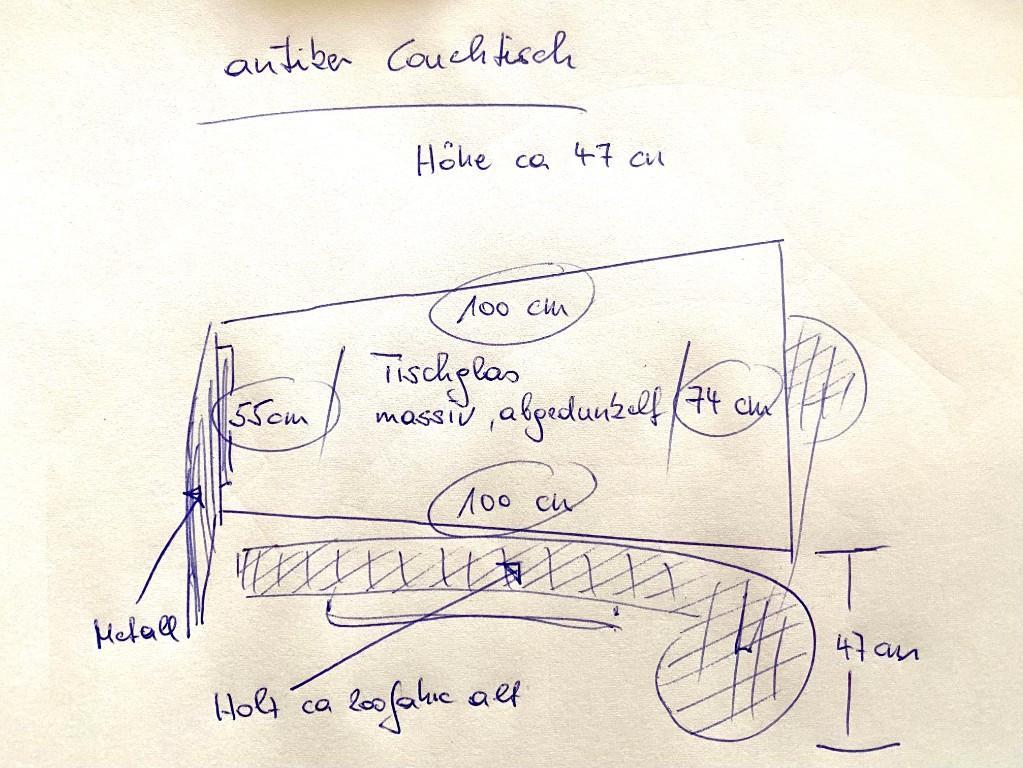 antiker Couchtisch
Höhe ca 47 cm
100 cm
Tischglas
55cm
massiv, abgedunkelt
74 cm
100 cm
Metall
47 cm
Holz ca 200 Jahre alt